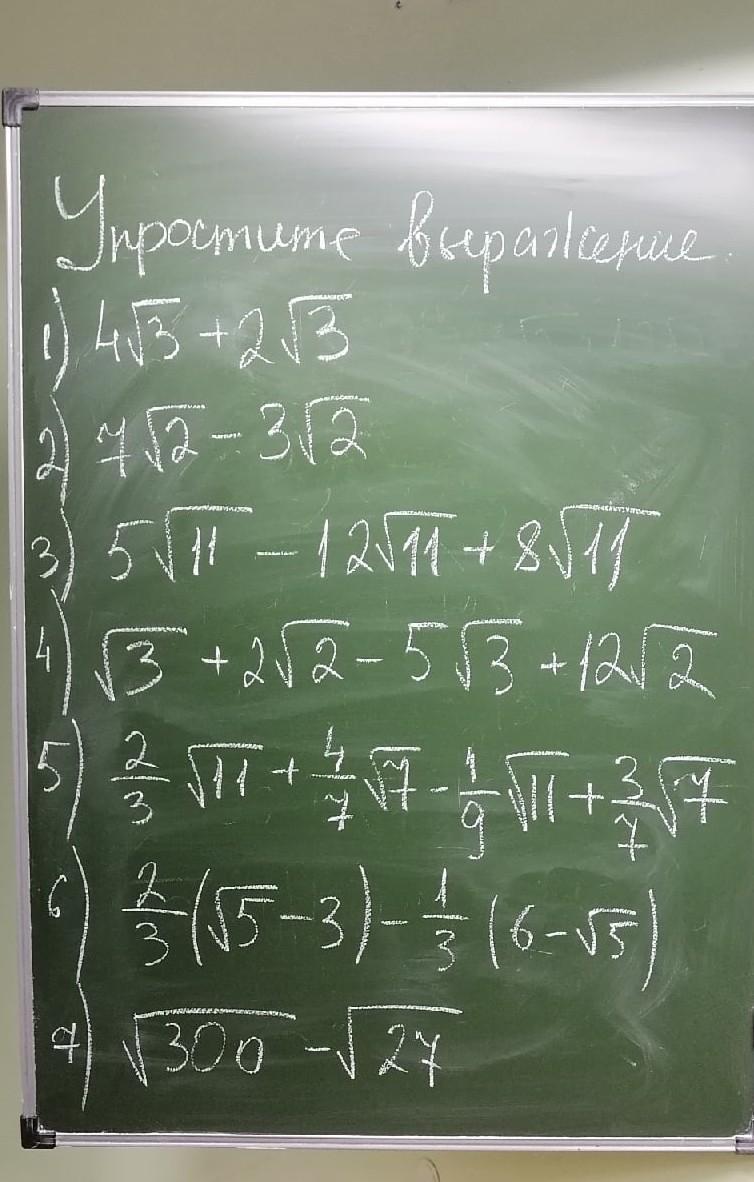 Упростите выражение.
1) 4√3 + 2√3
2) 7√2 - 3√2
3) 5√11 - 12√11 + 8√11
4) √3 + 2√2 - 5√3 + 12√2
5) 2/3 √11 + 4/7 √7 - 1/9 √11 + 3/7 √7
6) 2/3 (√5 - 3) - 1/3 (6 - √5)
7) √300 - √27